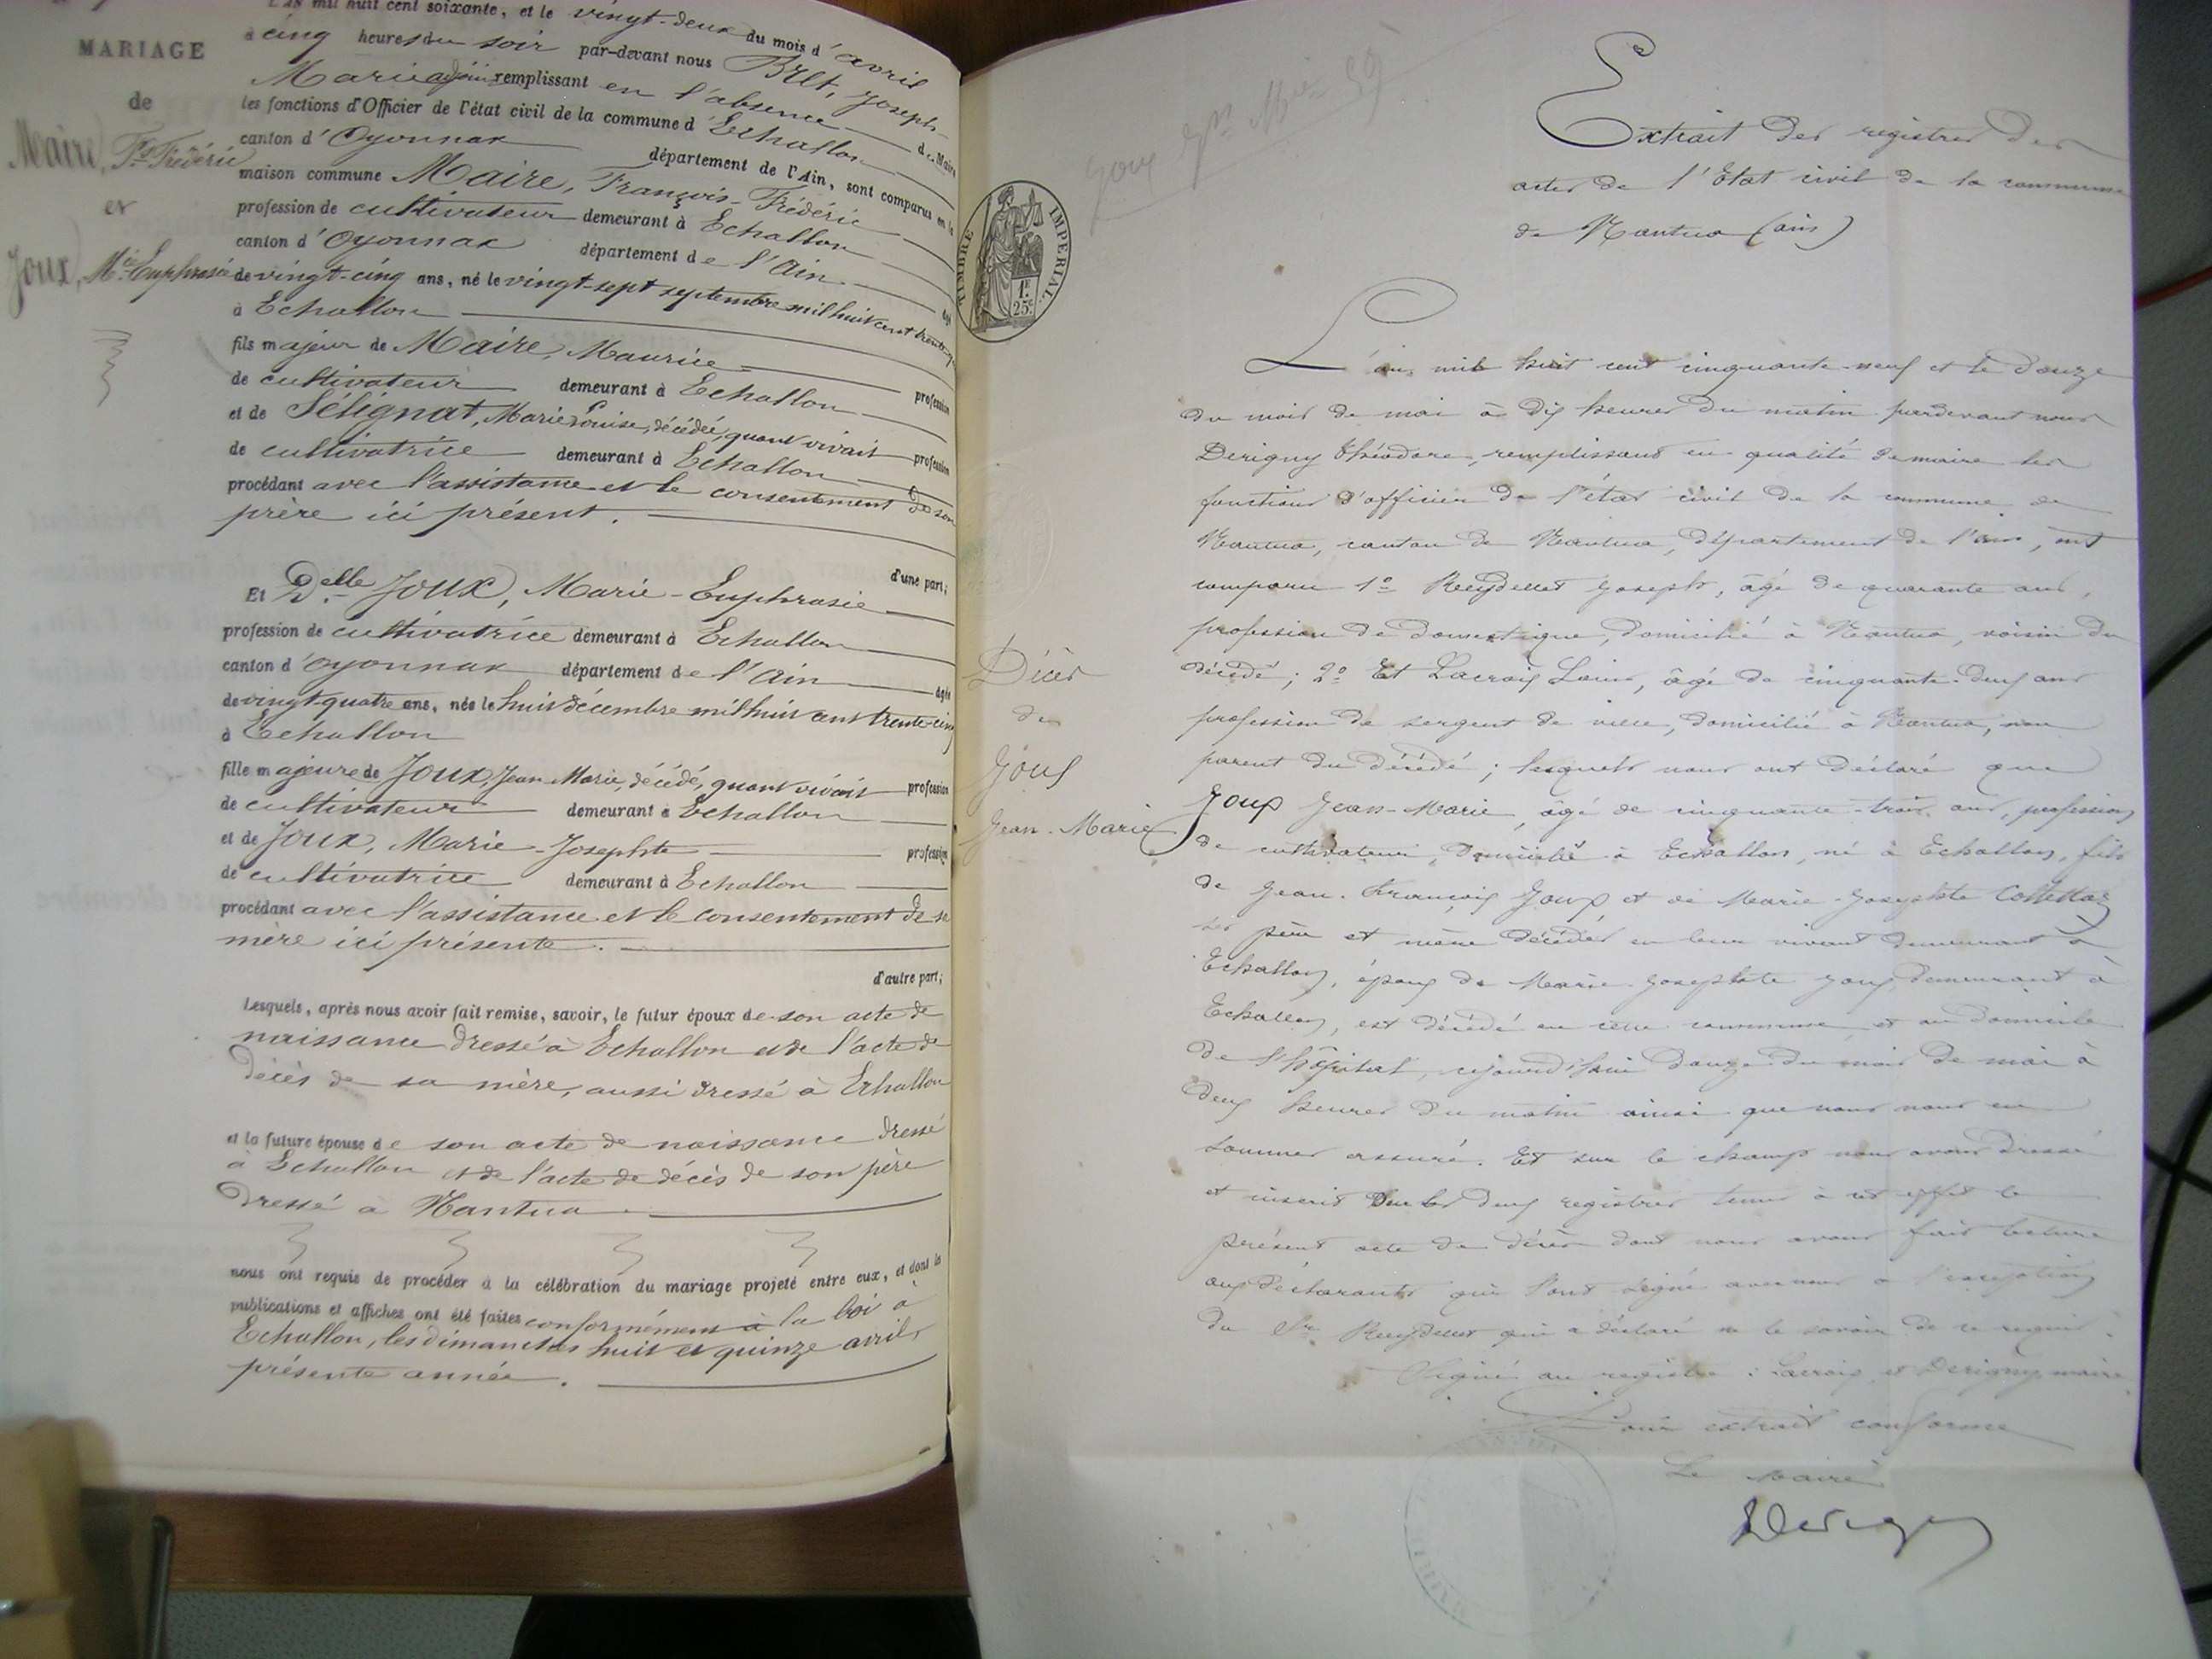 MARIAGE
de
Maire, Fs Frédéric
et
Joux, Mie Euphrasie
L'AN mil huit cent soixante, et le vingt-deux du mois d'avril
à cinq heures du soir par-devant nous Brët, Joseph-
Marie adjoint remplissant en l'absence du Maire
les fonctions d'Officier de l'état civil de la commune d'Echallon
canton d'Oyonnax département de l'Ain, sont comparus en la
maison commune Maire, François-Frédéric
profession de cultivateur demeurant à Echallon
canton d'Oyonnax département de l'Ain
de vingt-cinq ans, né le vingt-sept septembre mil huit cent trente
à Echallon
fils majeur de Maire, Maurice profession
de cultivateur demeurant à Echallon
et de Sélignat, Marie Louise, décédée, quant vivait profession
de cultivatrice demeurant à Echallon
procédant avec l'assistance et le consentement de son
père ici présent.
d'une part;
Et Delle Joux, Marie-Euphrasie
profession de cultivatrice demeurant à Echallon
canton d'Oyonnax département de l'Ain âgée
de vingt-quatre ans, née le huit décembre mil huit cent trente-cinq
à Echallon
fille majeure de Joux, Jean-Marie, décédé, quant vivait profession
de cultivateur demeurant à Echallon
et de Joux, Marie-Josephte profession
de cultivatrice demeurant à Echallon
procédant avec l'assistance et le consentement de sa
mère ici présente.
d'autre part;
Lesquels, après nous avoir fait remise, savoir, le futur époux de son acte de
naissance dressé à Echallon et de l'acte de
décès de sa mère, aussi dressé à Echallon
et la future épouse de son acte de naissance dressé
à Echallon et de l'acte de décès de son père
dressé à Nantua
nous ont requis de procéder à la célébration du mariage projeté entre eux, et dont les
publications et affiches ont été faites conformément à la loi à
Echallon, les dimanches huit et quinze avril
présente année.
TIMBRE IMPERIAL
1F.
25c
Extrait des registres des
actes de l'Etat civil de la commune
de Nantua (ain)
Décès
de
Joux
Jean-Marie
L'an mil huit cent cinquante-neuf et le douze
du mois de mai à dix heures du matin pardevant nous
Derigny Théodore, remplissant en qualité de maire les
fonctions d'officier de l'état civil de la commune de
Nantua, canton de Nantua, département de l'ain, ont
comparu 1o Reydellet Joseph, âgé de quarante ans,
profession de domestique, domicilié à Nantua, voisin du
décédé; 2o Et Lacroix Louis, âgé de cinquante-deux ans
profession de sergent de ville, domicilié à Nantua, non
parent du décédé; lesquels nous ont déclaré que
Joux Jean-Marie, âgé de cinquante-trois ans, profession
de cultivateur, domicilié à Echallon, né à Echallon, fils
de Jean-François Joux et de Marie-Josephte Collettaz
ses père et mère décédés en leur vivant demeurant à
Echallon, époux de Marie-Josephte Joux demeurant à
Echallon, est décédé en cette commune et au domicile
de l'hôpital, cejourd'hui douze du mois de mai à
deux heures du matin ainsi que nous nous en
sommes assuré. Et sur le champ nous avons dressé
et inscrit sur les deux registres tenus à cet effet le
présent acte de décès dont nous avons fait lecture
aux déclarants qui l'ont signé avec nous à l'exception
du Sr Reydellet qui a déclaré ne le savoir de ce requis.
Signé au registre: Lacroix et Derigny maire.
Pour extrait conforme
Le maire
Derigny